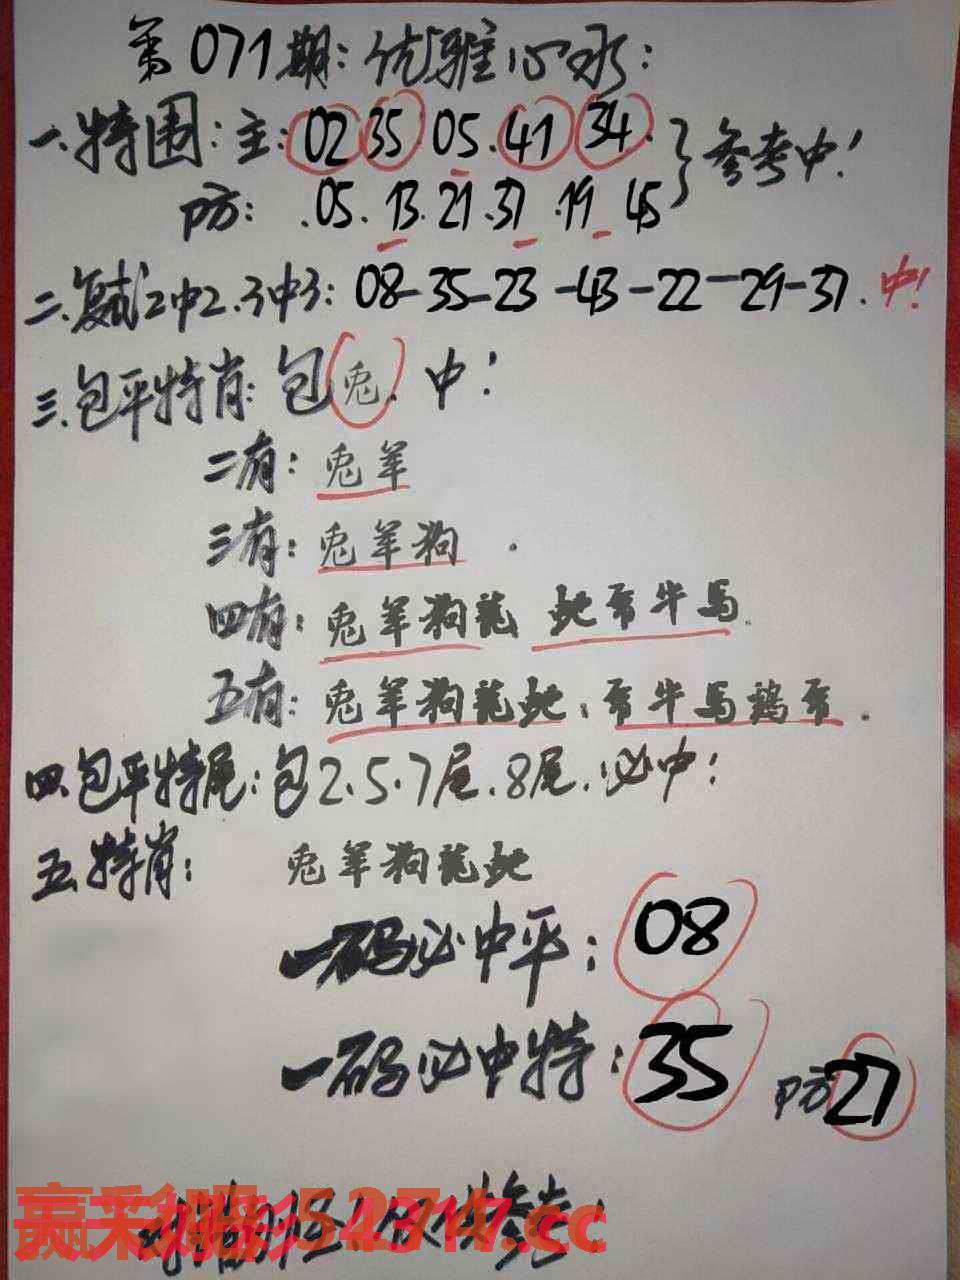 第071期：优雅心水：
一.特围：主：02 35 05.41 34. 参考中！
防：.05.13.21.37.19 45
二.复式2中2.3中3：08-35-23-43-22-29-37.中！
三.包平特肖：包兔.中！
二有：兔羊
三有：兔羊狗.
四有：兔羊狗龍 蛇
牛马.
五有：兔羊狗龍蛇；
牛马鸡
四.包平特尾：包2.5.7尾.8尾.必中！
五.特肖：兔羊狗龍蛇
一码必中平：08
一码必中特：35 防27
赢彩吧:52717.cc
参考